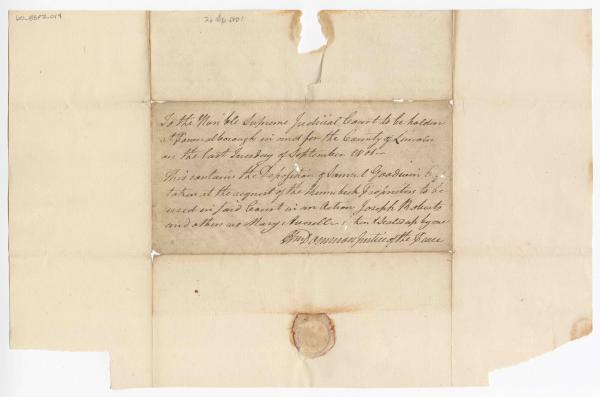 26 Sep 1801
To the Hon'ble Supreme Judicial Court to be holden
at Pownalborough in and for the County of Lincoln
on the last Tuesday of September 1801—
This contains the Deposition of Samuel Goodwin Esq
taken at the request of the Kennebeck Proprietors to be
used in said Court in an Action Joseph Roberts
and others vs Mary & Sealed up by me
Justice of the Peace